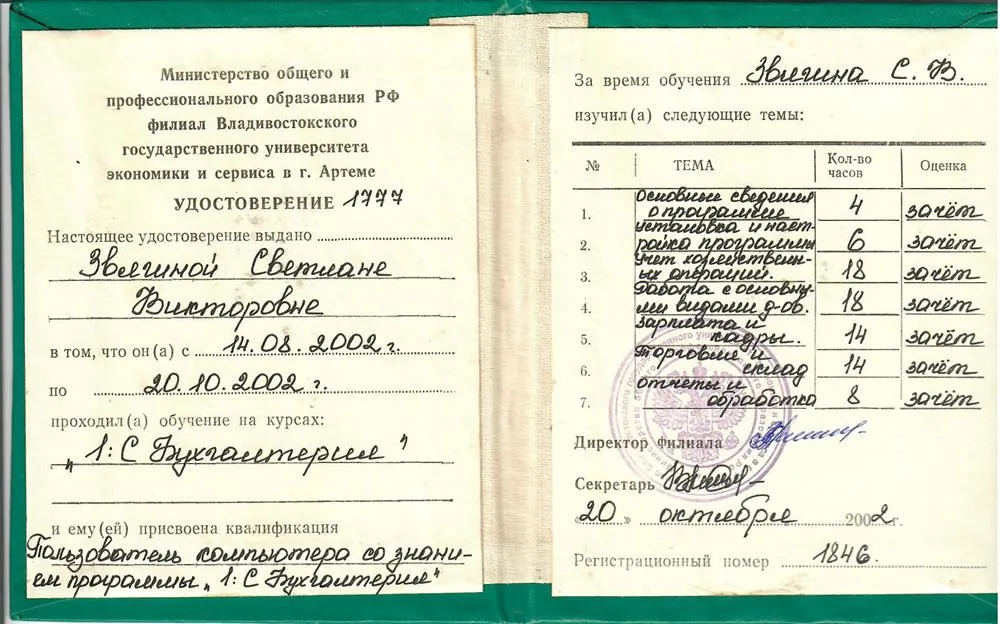 Министерство общего и
профессионального образования РФ
филиал Владивостокского
государственного университета
экономики и сервиса в г. Артеме
УДОСТОВЕРЕНИЕ 1777
Настоящее удостоверение выдано
Звягиной Светлане
Викторовне
в том, что он(а) с 14.08.2002 г.
по 20.10.2002 г.
проходил(а) обучение на курсах:
„1:С Бухгалтерия"
и ему(ей) присвоена квалификация
Пользователь компьютера со знани-
ем программы „1:С Бухгалтерия"
За время обучения Звягина С. В.
изучил(а) следующие темы:
№ ТЕМА Кол-во часов Оценка
1. основные сведения о программе 4 зачёт
2. установка и наст-ройка программы 6 зачёт
3. учет хозяйственн-ых операций. 18 зачёт
4. Работа с основны-ми видами д-ов. 18 зачёт
5. зарплата и кадры. 14 зачёт
6. Торговля и склад 14 зачёт
7. отчеты и обработка 8 зачёт
Директор филиала
Секретарь
«20» октября 2002 г.
Регистрационный номер 1846.